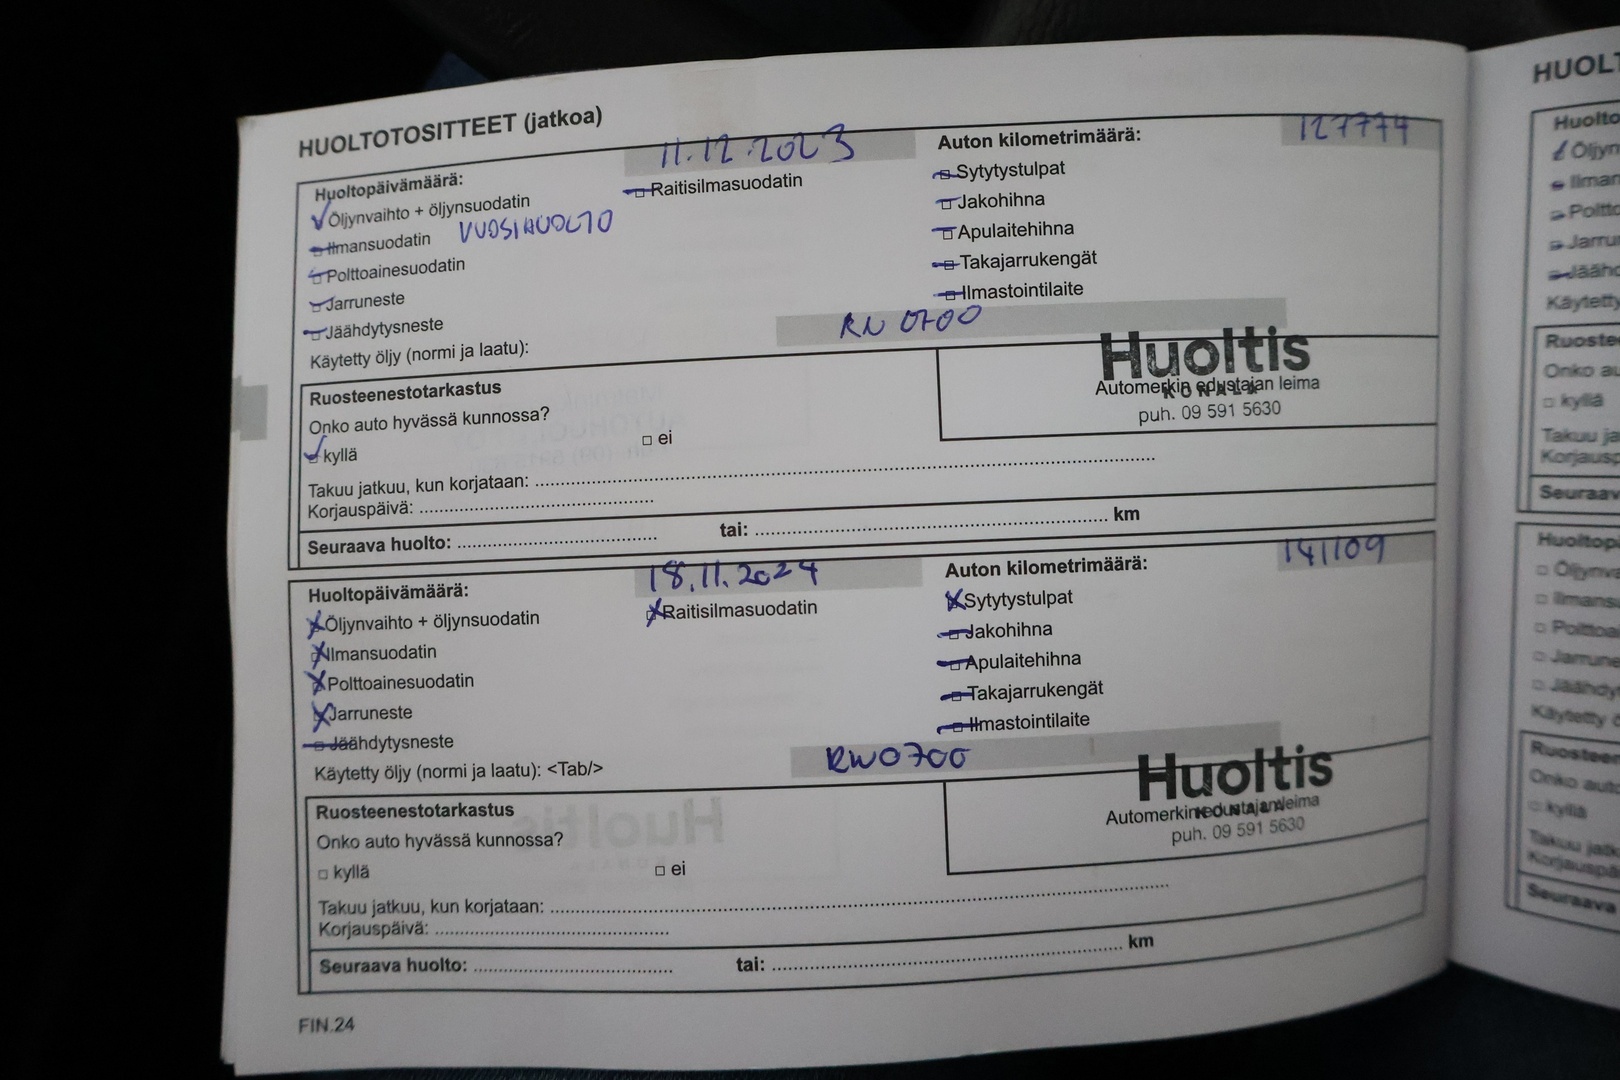 HUOLTOTOSITTEET (jatkoa)
Huoltopäivämäärä: 11.12.2023 Auton kilometrimäärä: 127774
Öljynvaihto + öljynsuodatin Raitisilmasuodatin Sytytystulpat
Ilmansuodatin VUOSIHUOLTO Jakohihna
Polttoainesuodatin Apulaitehihna
Jarruneste Takajarrukengät
Jäähdytysneste Ilmastointilaite
Käytetty öljy (normi ja laatu): RN 0700
Ruosteenestotarkastus
Onko auto hyvässä kunnossa?
kyllä ei
Huoltis
KONALA
Automerkin edustajan leima
puh. 09 591 5630
Takuu jatkuu, kun korjataan:
Korjauspäivä:
Seuraava huolto: tai: km
Huoltopäivämäärä: 18.11.2024 Auton kilometrimäärä: 141109
Öljynvaihto + öljynsuodatin Raitisilmasuodatin Sytytystulpat
Ilmansuodatin Jakohihna
Polttoainesuodatin Apulaitehihna
Jarruneste Takajarrukengät
Jäähdytysneste Ilmastointilaite
Käytetty öljy (normi ja laatu): <Tab/> RW0700
Ruosteenestotarkastus
Onko auto hyvässä kunnossa?
kyllä ei
Huoltis
Automerkin edustajan leima
puh. 09 591 5630
Takuu jatkuu, kun korjataan:
Korjauspäivä:
Seuraava huolto: tai: km
FIN.24
HUOLT
Huolto
Öljyn
Ilman
Poltto
Jarru
Jääh
Käytetty
Ruoste
Onko au
kyllä
Takuu ja
Korjausp
Seuraava
Huoltop
Öljynva
Ilmans
Polttoa
Jarrune
Jäähdy
Käytetty ö
Ruosteen
Onko auto
kyllä
Takuu jatk
Korjauspä
Seuraava